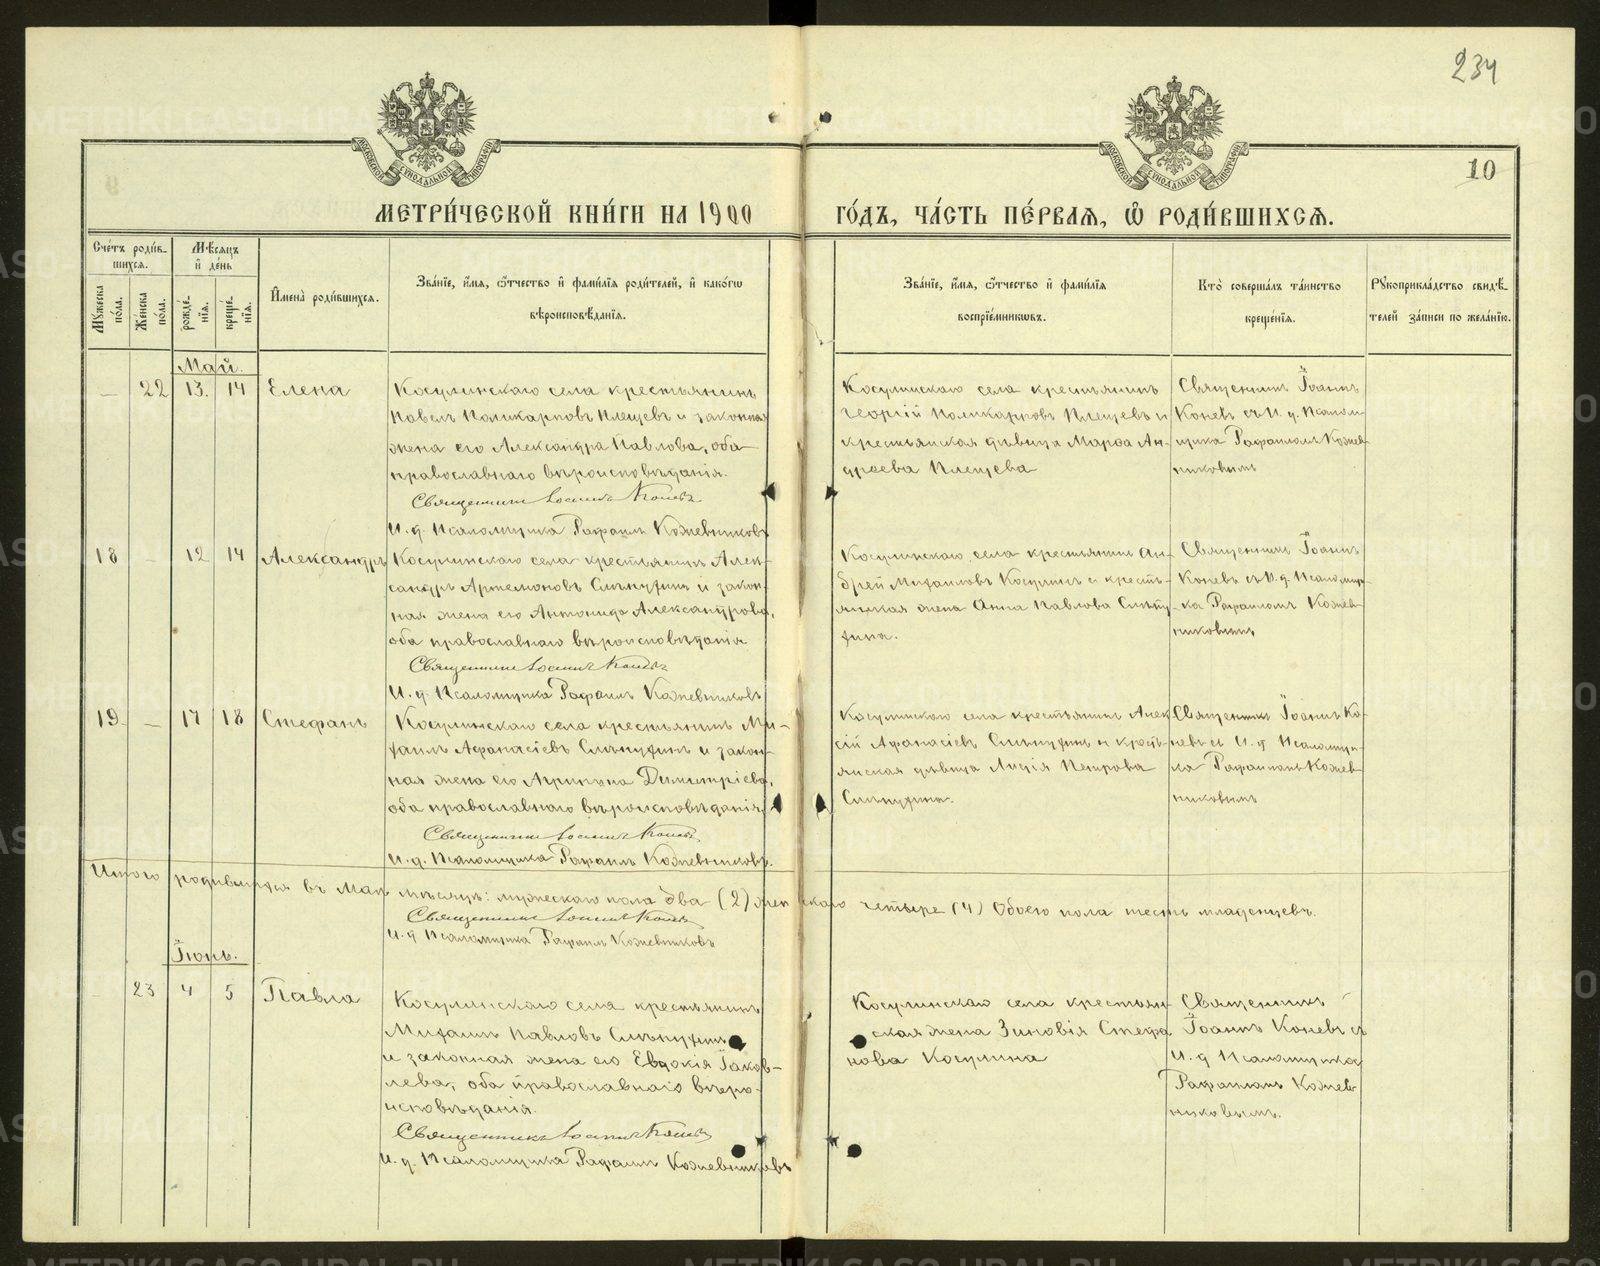 234
10
МЕТРИ́ЧЕСКОЙ КНИ́ГИ НА 1900 ГО́ДЪ, ЧА́СТЬ ПЕ́РВАЯ, Ѽ РОДИ́ВШИХСЯ.
Сче́тъ роди́в-
шихся.
Мѣ́сяцъ
и҆ де́нь
Мꙋ́жеска по́ла.
Же́нска по́ла.
рожде́-
нїя.
креще́-
нїя.
И҆мена̀ роди́вшихся.
Зва́нїе, и҆́мя, ѻ҆́тчество и҆ фами́лїя роди́телей, и҆ како́гѡ
вѣроисповѣ́данїя.
Зва́нїе, и҆́мя, ѻ҆́тчество и҆ фами́лїя
воспрїе́мникѡвъ.
Кто̀ соверша́лъ та́инство
креще́нїя.
Рꙋкоприкла́дство свидѣ́-
телей за́писи по жела́нїю.
Май.
— 22 13. 14 Елена
Косулинскаго села крестьянинъ
Павелъ Поликарповъ Плещевъ и законная
жена его Александра Павлова, оба
православнаго вѣроисповѣданія.
Священникъ Іоаннъ Коневъ
И. д. Псаломщика Рафаилъ Кожевниковъ
Косулинскаго села крестьянинъ
Георгій Поликарповъ Плещевъ и
крестьянская дѣвица Марфа Ан-
дреева Плещева
Священникъ Іоаннъ
Коневъ съ И. д. Псалом-
щика Рафаиломъ Кожев-
никовымъ
18 — 12 14 Александръ
Косулинскаго села крестьянинъ Алек-
сандръ Артемоновъ Слѣпухинъ и закон-
ная жена его Антонида Александрова,
оба православнаго вѣроисповѣданія
Священникъ Іоаннъ Коневъ
И. д. Псаломщика Рафаилъ Кожевниковъ
Косулинскаго села крестьянинъ Ан-
дрей Михаиловъ Косулинъ и кресть-
янская жена Анна Павлова Слѣпу-
хина.
Священникъ Іоаннъ
Коневъ съ И. д. Псаломщи-
ка Рафаиломъ Кожев-
никовымъ
19 — 17 18 Стефанъ
Косулинскаго села крестьянинъ Ми-
хаилъ Афанасіевъ Слѣпухинъ и закон-
ная жена его Агрипина Димитріева,
оба православнаго вѣроисповѣданія
Священникъ Іоаннъ Коневъ
И. д. Псаломщика Рафаилъ Кожевниковъ.
Косулинскаго села крестьянинъ Алек-
сій Афанасіевъ Слѣпухинъ и кресть-
янская дѣвица Лидія Петрова
Слѣпухина.
Священникъ Іоаннъ Ко-
невъ съ И. д. Псаломщи-
ка Рафаиломъ Кожев-
никовымъ
Итого родившихся въ Маѣ мѣсяцѣ: мужескаго пола два (2) женскаго четыре (4) Обоего пола шесть младенцевъ.
Священникъ Іоаннъ Коневъ
И. д. Псаломщика Рафаилъ Кожевниковъ
Іюнь.
23 4 5 Павла
Косулинскаго села крестьянинъ
Михаилъ Павловъ Слѣпухинъ
и законная жена его Евдокія Іаков-
лева, оба православнаго вѣро-
исповѣданія.
Священникъ Іоаннъ Коневъ
И. д. Псаломщика Рафаилъ Кожевниковъ
Косулинскаго села крестьян-
ская жена Зиновія Стефа-
нова Косулина
Священникъ
Іоаннъ Коневъ съ
И. д. Псаломщика
Рафаиломъ Кожев-
никовымъ.